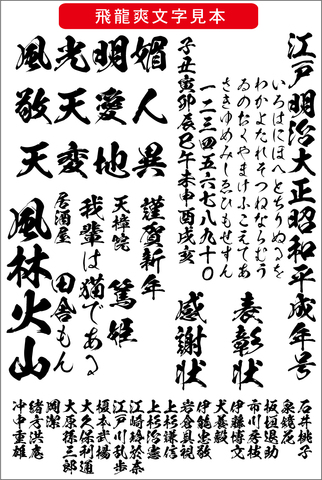 飛龍爽文字見本
江戸明治大正昭和平成年号
いろはにほへとちりぬるを
わかよたれそつねならむう
ゐのおくやまけふこえてあ
さきゆめみしゑひもせすん
一二三四五六七八九十〇
子丑寅卯辰巳午未申酉戌亥
媚人異
明愛地
光天変
風敬天
表彰状
感謝状
謹賀新年
天樟院 篤姫
我輩は猫である
居酒屋 田舎もん
風林火山
石井桃子
泉鏡花
板垣退助
市川房枝
伊藤博文
犬養毅
伊能忠敬
岩倉具視
上杉謙信
上杉治憲
江崎玲於奈
江戸川乱歩
榎本武揚
大久保利通
大原孫三郎
岡潔
緒方洪庵
沖中重雄